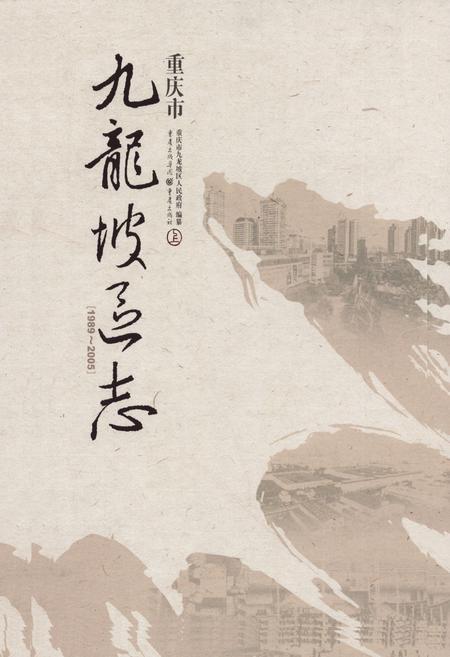 重庆市
九龍坡区志
[1989～2005]
重庆市九龙坡区人民政府 编纂
重庆出版集团 重庆出版社
上